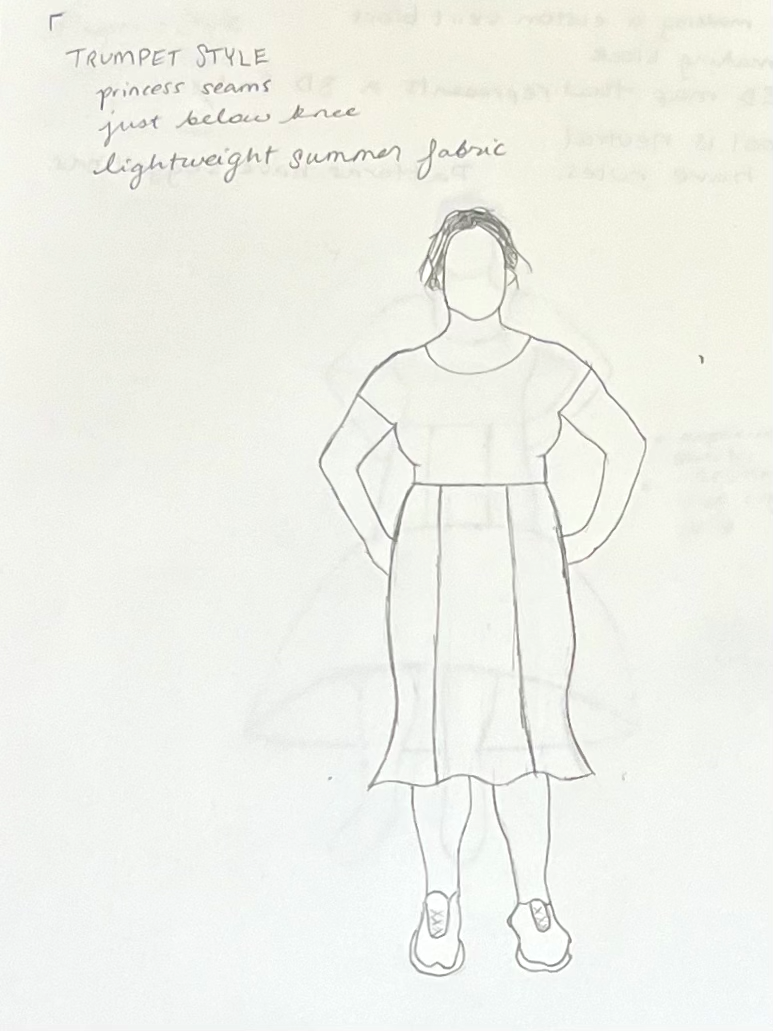 TRUMPET STYLE
princess seams
just below knee
lightweight summer fabric